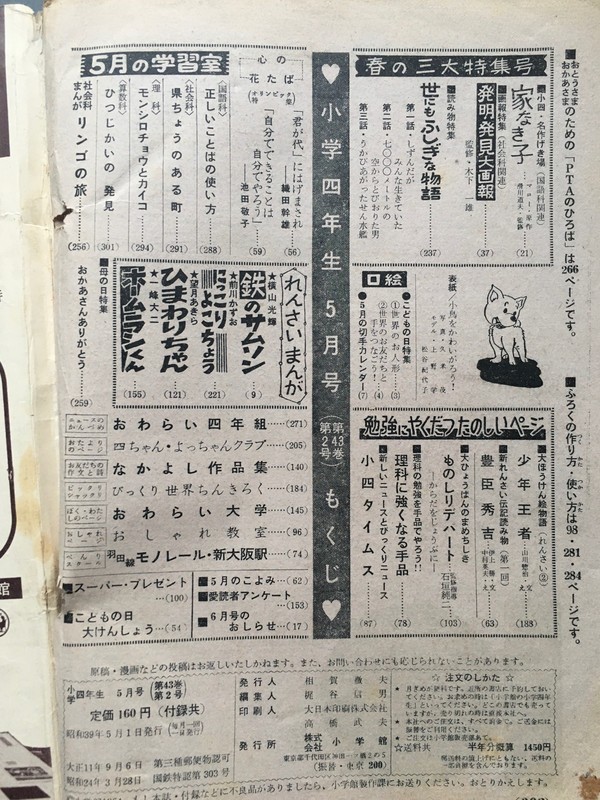 ■おとうさま おかあさまのための「PTAのひろば」は266ページです。
■ふろくの作り方・使い方は98・281・284ページです。
春の三大特集号
■小四・名作げき場(国語科関連)
家なき子
マロー・原作
(21)
■画報特集(社会科関連)
発明発見大画報
監修・木下一雄
(37)
■読み物特集
世にもふしぎな物語
第一話・しずんだが みんな生きていた
第二話・七〇〇〇メートルの 空からとびおりた男
(237)
表紙/小鳥をかわいがろう!
口絵
●こどもの日特集
①世界のお人形
(3)
②世界のお友だちと 手をつなごう!
(4)
●5月の切手カレンダー
(7)
勉強にやくだつたのしいページ
■大ぼうけん絵物語(れんさい②)
少年王者
山川惣治・文
(188)
■新れんさい伝記読み物(第一回)
豊臣秀吉
(53)
■大ひょうばんのまめちしき
ものしりデパート
—からだをじょうぶに—
石垣純二
(103)
■理科の勉強を手品でやろう!!
理科に強くなる手品
(78)
■新しいニュースとびっくりニュース
小四タイムス
(87)
♥小学四年生 5月号(第43巻 第2号)もくじ♥
心の花たば
(オリンピック特集)
「君が代」にはげまされ
—織田幹雄
(56)
「自分でできることは 自分でやろう」
—池田敬子
(59)
5月の学習室
〈国語科〉
正しいことばの使い方
(288)
〈社会科〉
県ちょうのある町
(291)
〈理科〉
モンシロチョウとカイコ
(294)
〈算数科〉
ひつじかいの発見
(301)
社会科まんが リンゴの旅
(256)
れんさいまんが
★横山光輝
鉄のサムソン
(9)
★前川かずお
にっこりよこちょう
(221)
★望月あきら
ひまわりちゃん
(121)
ホームランくん
(155)
■母の日特集
おかあさんありがとう
(259)
ニュースのかんづめ
おわらい四年組
(271)
おたよりのページ
四ちゃん・よっちゃんクラブ
(205)
お友だちの作文と詩
なかよし作品集
(140)
ビックリシャックリ
びっくり世界ちんきろく
(184)
ぼく・わたしのページ
おわらい大学
(145)
おしゃれページ
おしゃれ教室
(96)
べんりスクール
羽田線モノレール・新大阪駅
(74)
■スーパー・プレゼント
(100)
■こどもの日 大けんしょう
(54)
■5月のこよみ
(62)
■愛読者アンケート
(153)
■6月号のおしらせ
(17)
原稿・漫画などの投稿はお返しいたしかねます。また、お問い合わせにも応じられないことがあります。
小学四年生 5月号(第43巻 第2号)
定価160円(付録共)
昭和39年5月1日発行(毎月一回一日発行)
大正11年9月6日 第三種郵便物認可
昭和24年3月28日 国鉄特認第303号
発行人 相賀徹夫
編集人 梶谷信男
印刷人 大日本印刷株式会社
高橋武夫
発行所 株式会社 小学館
東京都千代田区神田一ツ橋2の5
(振替・東京200)
☆注文のしかた☆
☆送料共 半年分概算 1450円